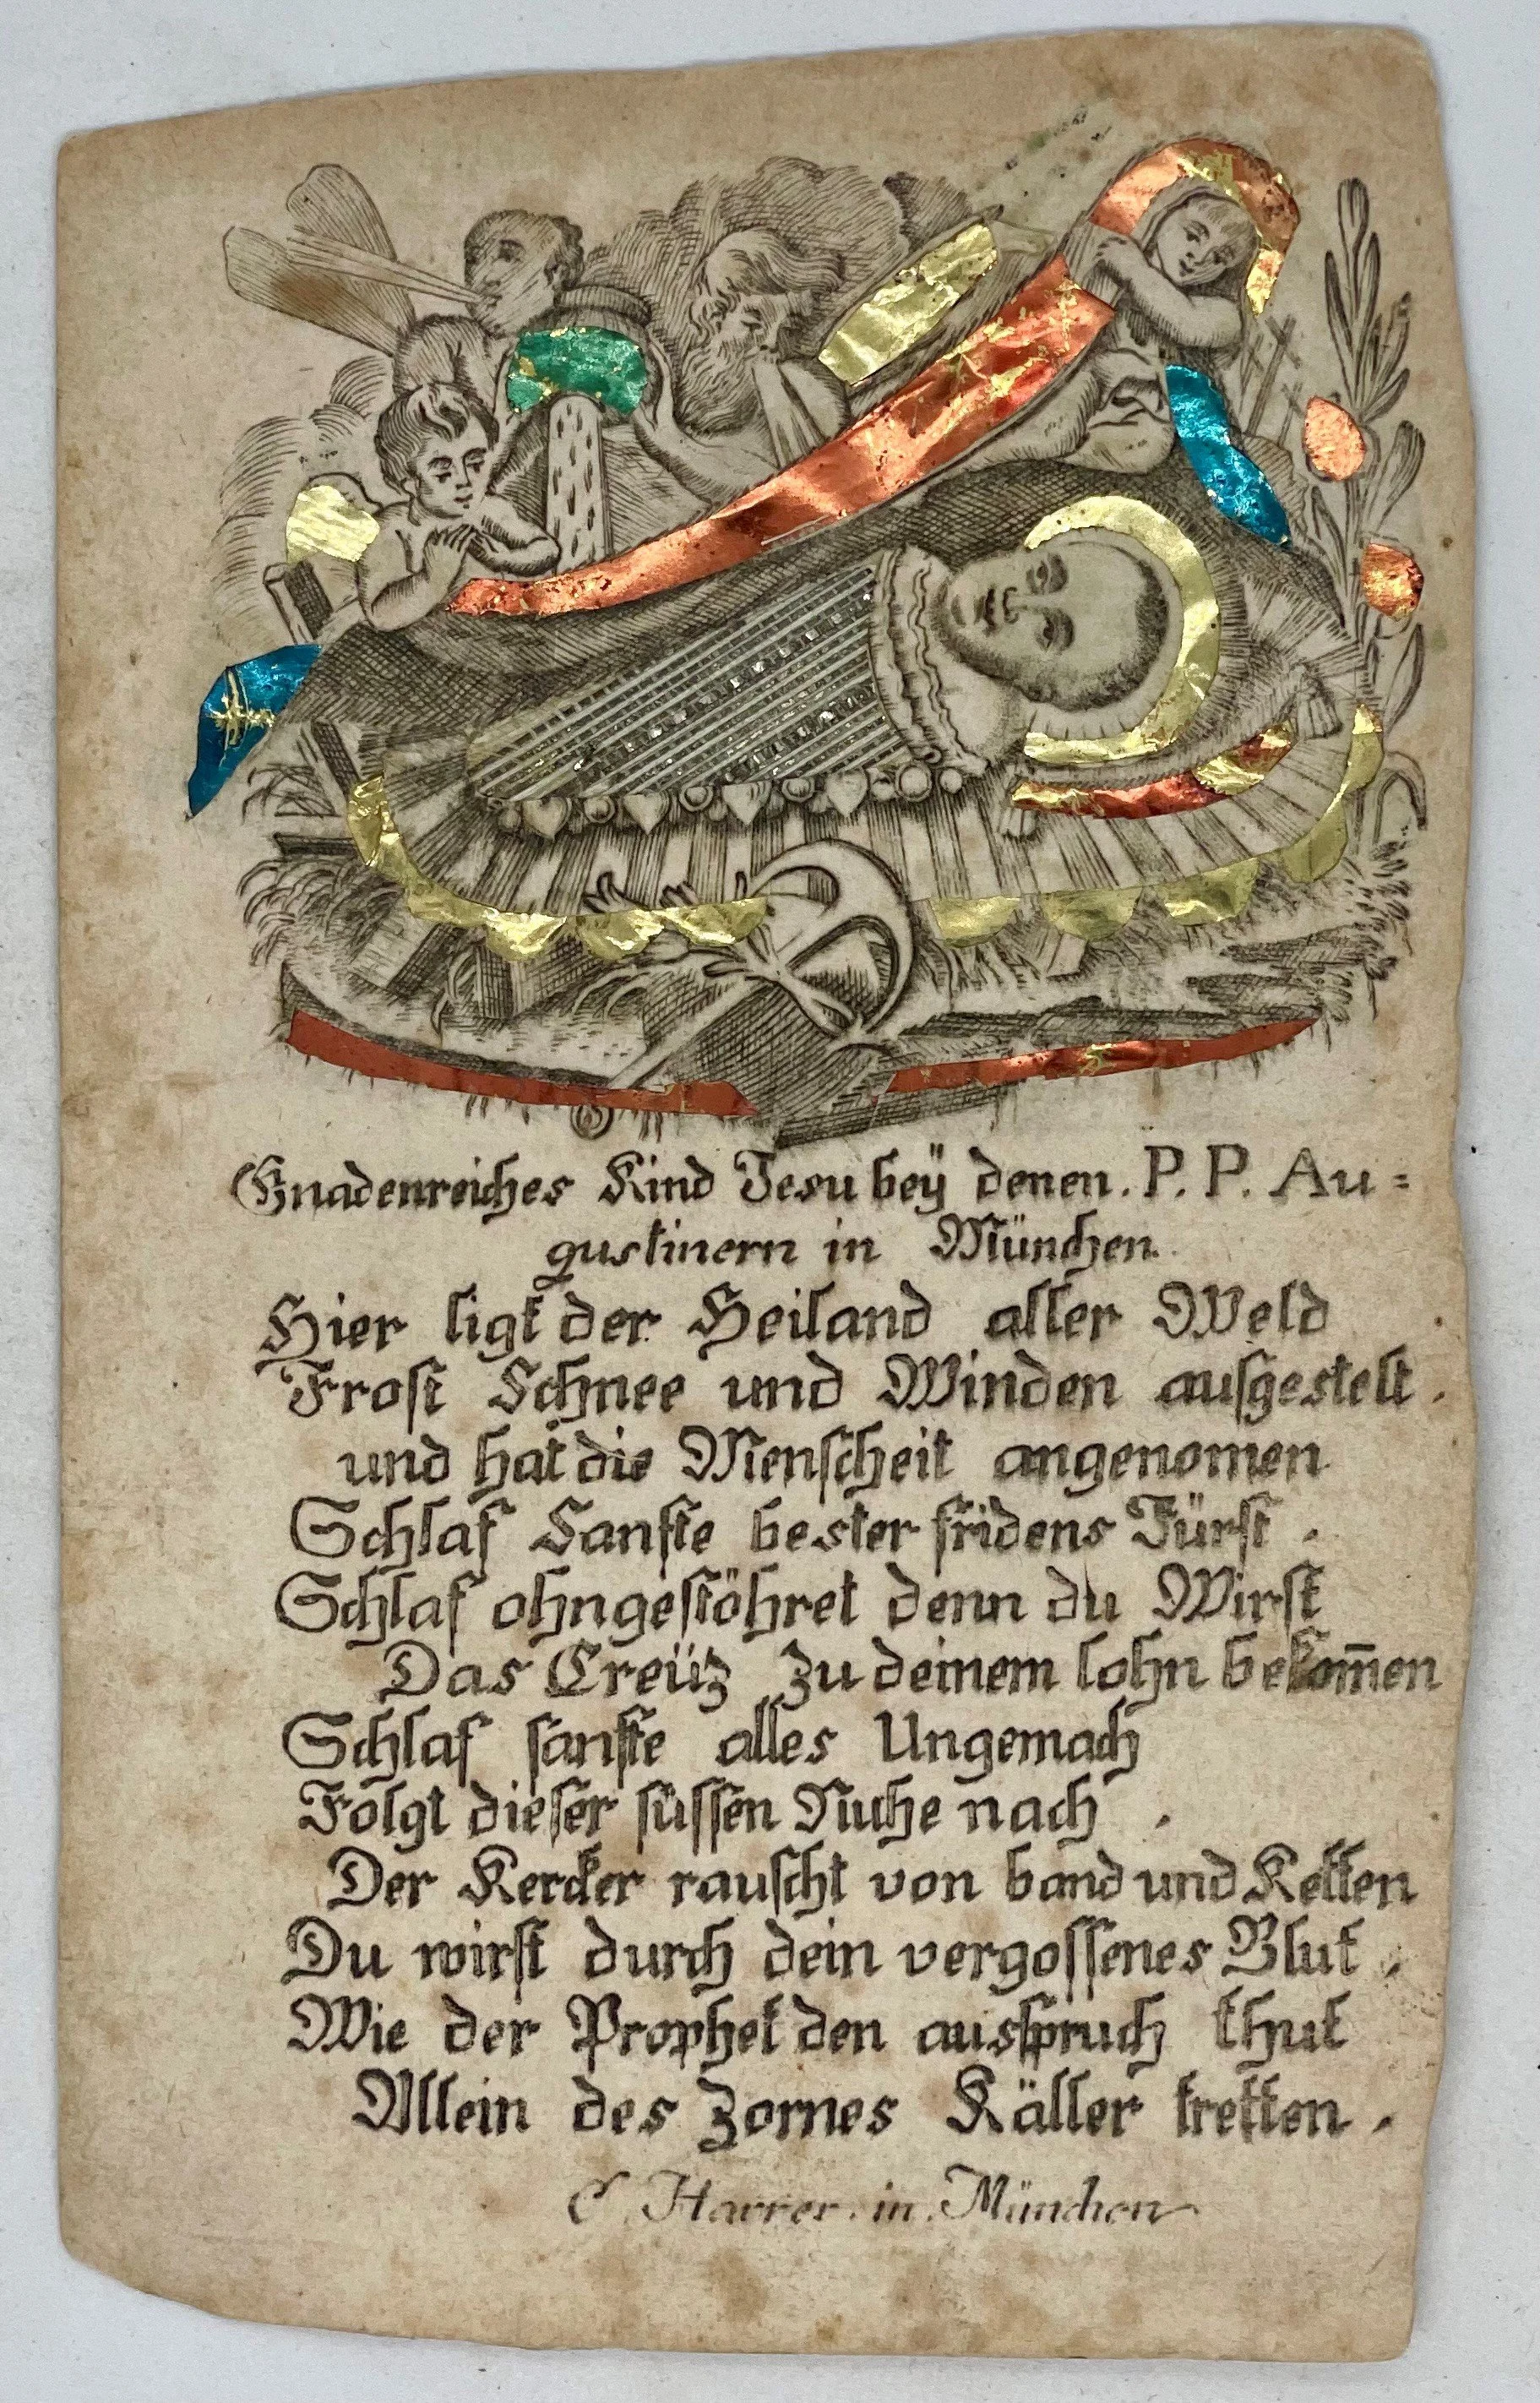 Gnadenreiches Kind Jesu beÿ denen. P. P. Au=
gustinern in München.
Hier ligt der Heiland aller Weld
Frost Schnee und Winden ausgestelt.
und hat die Menscheit angenomen
Schlaf Sanfte bester fridens Fürst.
Schlaf ohngestöhret denn du Wirst
Das Creüz zu deinem lohn bekom̅en
Schlaf sanfte alles Ungemach
Folgt dieser süssen Ruhe nach.
Der Kercker rauscht von band und Ketten
Du wirst durch dein vergossenes Blut.
Wie der Prophet den ausspruch thut
Allein des Zornes Käller tretten.
C. Harrer. in. München